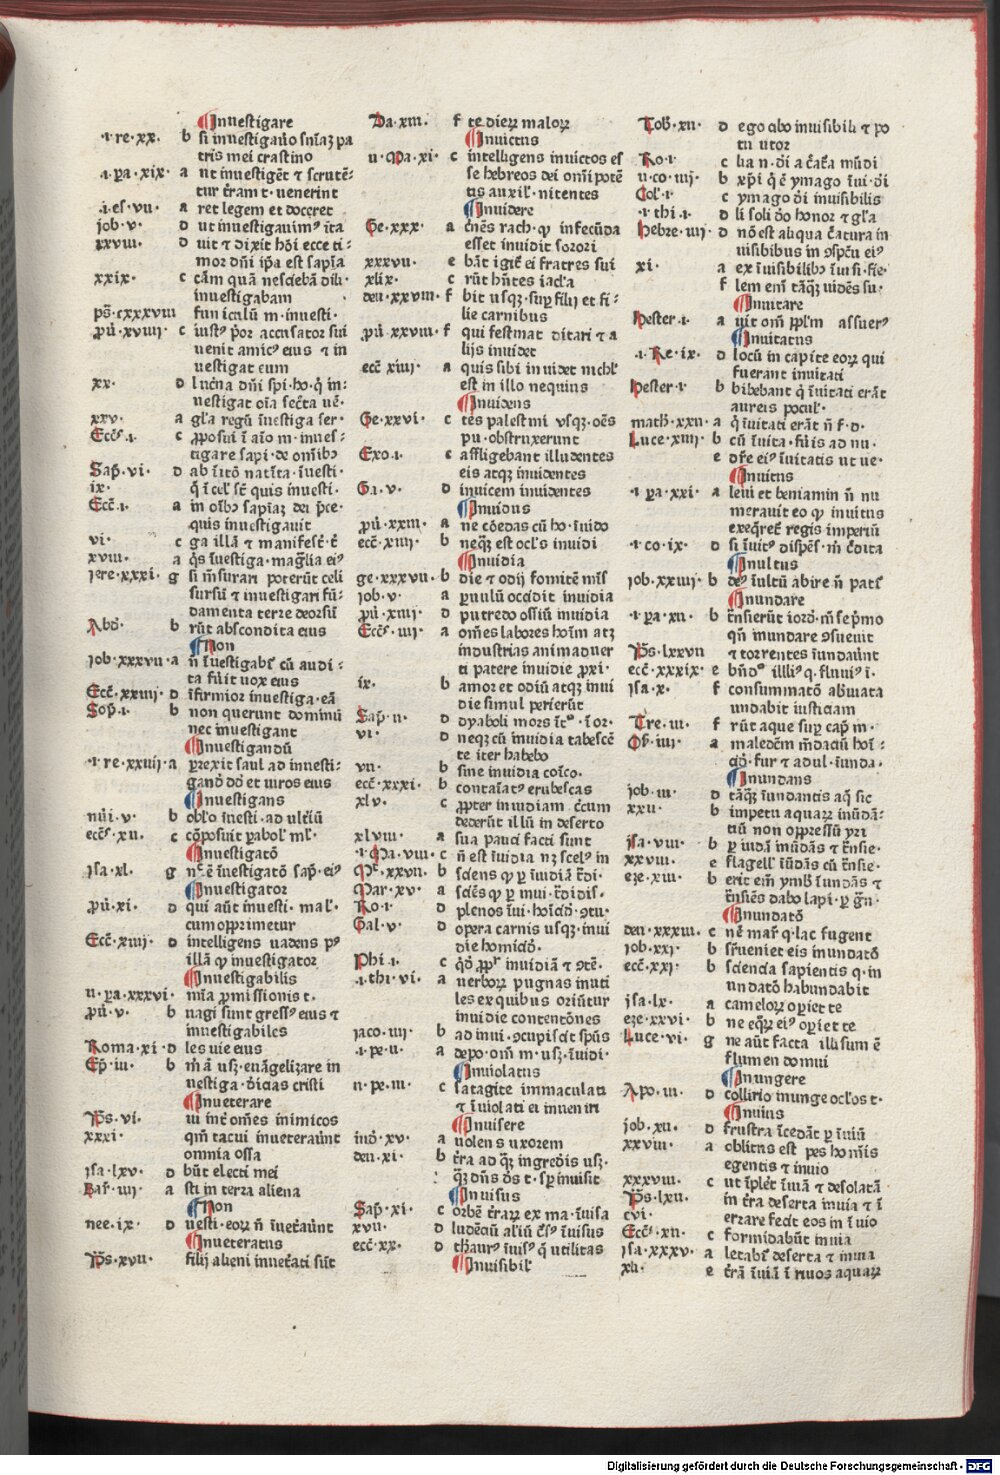 ¶Inuestigare
.i.re.xx. b si inuestigauero sñiaʒ pa
tris mei crastino
.i.pa.xix. a ut inuestigēt ⁊ scrutē=
tur terram t. uenerint
.i.es.vii. a ret legem et doceret
iob.v. d ut inuestigauimꝰ ita
xxviii. d uit ⁊ dixit hōi ecce ti=
mor dñi ip̄a est sapīa
xxix. c cām quā nesciebā dili.
inuestigabam
ps̄.cxxxviii funiculū m. inuesti.
ꝓū.xviii. c iustꝰ p̄or accusator sui
uenit amicꝰ eius ⁊ in
uestigat eum
xx. d lucīna dñi spi.ho.q̄ in=
uestigat oīa secēta uē.
xxv. a gl̄a regū īuestiga ser.
Eccēs.i. c ꝓposui ī aīo m.inues=
tigare sapi.de omībꝰ
Sap̄.vi. d ab ītō natīta.īuesti.
ix. q̄ ī cel̄ sē quis inuesti.
Eccī.i. a in oībꝰ sapīaʒ dei p̄ce.
quis inuestigauit
vi. c ga illā ⁊ manifesē.ē
xviii. a q̄s īuestiga.mag̃lia eiꝰ
iere.xxxi. g si m̄surari poterūt celi
sursū ⁊ inuestigari fū=
damenta terre deorsū
Abd̄. b rūt abscondita eius
¶Non
iob.xxxvii.a n̄ īuestigabī cū audi=
ta fūit uox eius
Eccī.xxiiii. d īfirmior inuestiga.eā
Sop̄.i. b non querunt dominū
nec inuestigant
¶Inuestigandū
.i.re.xxiii.a ꝑrexit saul ad inuesti=
gandō dd̄ et uiros eius
¶Inuestigans
nūi.v. b obl̄o īuesti.ad ultīū
eccēs.xii. c cōposuit ꝑabol̄ ml̄.
¶Inuestigatō
isa.xl. g nᶜ ē īuestigatō sap̄.eiꝰ
¶Inuestigator
ꝓū.xi. d qui aūt inuesti.mal̄.
cum opprimetur
Eccī.xiiii. d intelligens uadens pꝰ
illā ꝙ inuestigator
¶Inuestigabilis
ii.pa.xxxvi. mīa ꝓmissionis t.
ꝓū.v. b uagi sunt gressꝰ eius ⁊
inuestigabiles
Roma.xi.d les uie eius
Ep̄.iii. b m̄ ā usʒ.euāgelizare in
uestiga.diuias cristi
¶Inueterare
Ps̄.vi. iii int̄ omēs inimicos
xxxi. qm̄ tacui inueterauīnt
omnia ossa
isa.lxv. d būt electi mei
Bar̄.iii. a sti in terra aliena
¶Non
nee.ix. d uesti.eoꝝ n̄ īuet̄aūnt
¶Inueteratus
Ps̄.xvii. filij alieni inuet̄ati sūt
Da.xiii. f te dieꝝ maloꝝ
¶Inuictus
ii.Ma.xi. c intelligens inuictos es
se hebreos dei omī potē
tis auxil̄.nitentes
¶Inuidere
Ge.xxx. a cēnēs rach.ꝙ infecūda
esset inuidit sorori
xxxvii. e bāt igit̄ ei fratres sui
xlix. c rūt hn̄tes iacl̄a
deu.xxviii. f bit usqʒ.suꝑ filij et fi=
lie carnibus
ꝓū.xxviii. f qui festinat ditari ⁊ a
lijs inuidet
eccī xiiii. a quis sibi inuidet nichil̄
est in illo nequius
¶Inuidens
Ge.xxvi. c tes palestini usqʒ.oēs
pu.obstruxerunt
Exo.i. c affligebant illudentes
eis atqʒ inuidentes
Ga.v. d inuicem inuidentes
¶Inuidus
ꝓū.xxiii. a ne cōedas cū ho.īuido
eccī.xiiii. b neqʒ est ocl̄s inuidi
¶Inuidia
ge.xxxvii. b die ⁊ odij fomitē mīs
iob.v. a ꝑuulū occidit inuidia
ꝓū.xiiii. d putredo ossiū inuidia
Eccēs.iiii. a omēs labores hoīm atʒ
industrias animaduer
ti patere inuidie ꝓxi.
ix. b amor et odiū atqʒ inui
die simul perierūt
Sap̄.ii. d dyaboli mors īt°.ī or.
vi. d neqʒ cū inuidia tabescē
te iter habebo
vii. b sine inuidia coīco.
eccī.xxxi. b contaīatꝰ erubescas
xlv. c ꝓpter inuidiam ēcum
dederūt illū in deserto
xlviii. a sua pauci facti sunt
.i.Ma.viii. c n̄ est īuidia nʒ scelꝰ in
Mᶜ.xxvii. b sciens ꝙ ꝑ īuidiā t̄di.
Mar.xv. a sciēs ꝙ ꝑ inui.t̄didis.
Ro.i. d plenos īui.hoīcid̄.ꝯtu.
Gal.v. d opera carnis usqʒ.inui
die homicid̄.
Phi.i. c q̄d̄ ꝓpꝰ inuidiā ⁊ ꝯtē.
.i.thi.vi. a uerboꝝ pugnas inuti
les ex quibus oriūtur
inuidie contentōnes
iaco.iiii. b ad inui.ꝯcupiscit spūs
.i.pe.ii. a depo.om̄ m.usʒ.īuidi.
¶Inuiolatus
ii.pe.iii. c satagite immaculati
⁊ īuiolati ei inueniri
¶Inuisere
iud̄.xv. a uolens uxorem
deu.xi. b t̄ra ad qʒ ingred̄is usʒ.
q̄ʒ dn̄s ds̄ t.sꝑ inuisit
¶Inuisus
Sap̄.xi. c orbē t̄raꝝ ex ma.īuisa
xvii. d ludēaū aliū ēsꝰ īuisus
eccī.xx. d thaurꝰ īuisꝰ q̄ utilitas
¶Inuisibil̄
Tob̄.xii. d ego cibo inuisibili ⁊ po
tu utor
Ro.i. c lia n.di a c̄at̄a mūdi
ii.co.iiii. b xp̄i q̄ ē ymago īui.di
Col̄.i. c ymago di inuisibilis
.i.thi.i. d li soli d̄o honor ⁊ gl̄a
hebre.iiii. d nō est aliqua c̄atura in
uisibibus in ꝯspcū eiꝰ
xi. a ex īuisibilibꝰ īuisi.fie.
f lem em̄ tāqʒ uidēs su.
¶Inuitare
hester.i. a uit om̄ ppl̄m assuerꝰ
¶Inuitatus
.i.Re.ix. d locū in capite eoꝝ qui
fuerant inuitati
hester.i. b bibebant q̄ īuitati erāt
aureis pocul̄.
math̄.xxii. a q̄ īuitati erāt n̄ f.d.
Luce.xiiii. b cū īuita.fūis ad nu.
e d̄re eiꝰ īuitatis ut ue.
¶Inuitus
.i.pa.xxi. a leui et beniamin n̄ nu
merauit eo ꝙ inuitus
exeqret̄ regis imperiū
.i.co.ix. d si īuitꝰ dispēs̄.m̄ c̄dita
¶Inultus
iob.xxiiii. b deꝰ īultū abire n̄ patī
¶Inundare
.i.pa.xii. b t̄nsierūt iord̄.m̄se p̄mo
qn̄ inundare ꝯsueuit
Ps̄.lxxvii ⁊ torrentes īundaūnt
eccī.xxxix. e bn̄d° illiꝰ q.fluuiꝰ ī.
isa.x. f consummatō abuiata
undabit iusticiam
Tre.iii. f rūt aque suꝑ cap̄ m.
Os̄.iiii. a maledēm m̄daciū hoī=
cid̄.fur ⁊ adul.īunda.
¶Inundans
iob.iii. d tāqʒ īundantis aq̄ sic
xxii. b impetu aquaꝝ inūdā=
tiū non oppressū pri
isa.viii. b ꝑ iudā inūdās ⁊ t̄nsie.
xxviii. e flagell̄ īūdās cū t̄nsie.
eze.xiii. b erit em̄ ymb̄ īundās ⁊
t̄nsiēs dabo lapi.ꝑ g̃n.
¶Inundatō
deu.xxxiii. c nē mar̄ q.lac fugent
iob.xxi. b sr̄ueniet eis inundatō
eccī.xxi. b sciencia sapientis q.in
undatō habundabit
isa.lx. a cameloꝝ oꝑiet te
eze.xxvi. b ne eqʒꝝ eiꝰ oꝑiet te
Luce.vi. g ne aūt facta illisum ē
flumen domui
¶Inungere
Apo.iii. d collirio inunge ocl̄os t.
¶Inuius
iob.xii. d frustra īcedāt ꝑ īuiū
xxviii. a oblitus est pes hominis
egentis ⁊ inuio
xxxviii. c ut īplet̄ īuiā ⁊ desolatā
Ps̄.lxii. in t̄ra deserta inuia ⁊ ī
cvi. errare fecit eos in īuio
Eccēs.xii. c formidabūt in uia
isa.xxxv. a letabī deserta ⁊ inuia
xli. e t̄rā īuiā ī riuos aquaꝝ
Digitalisierung gefördert durch die Deutsche Forschungsgemeinschaft - DFG